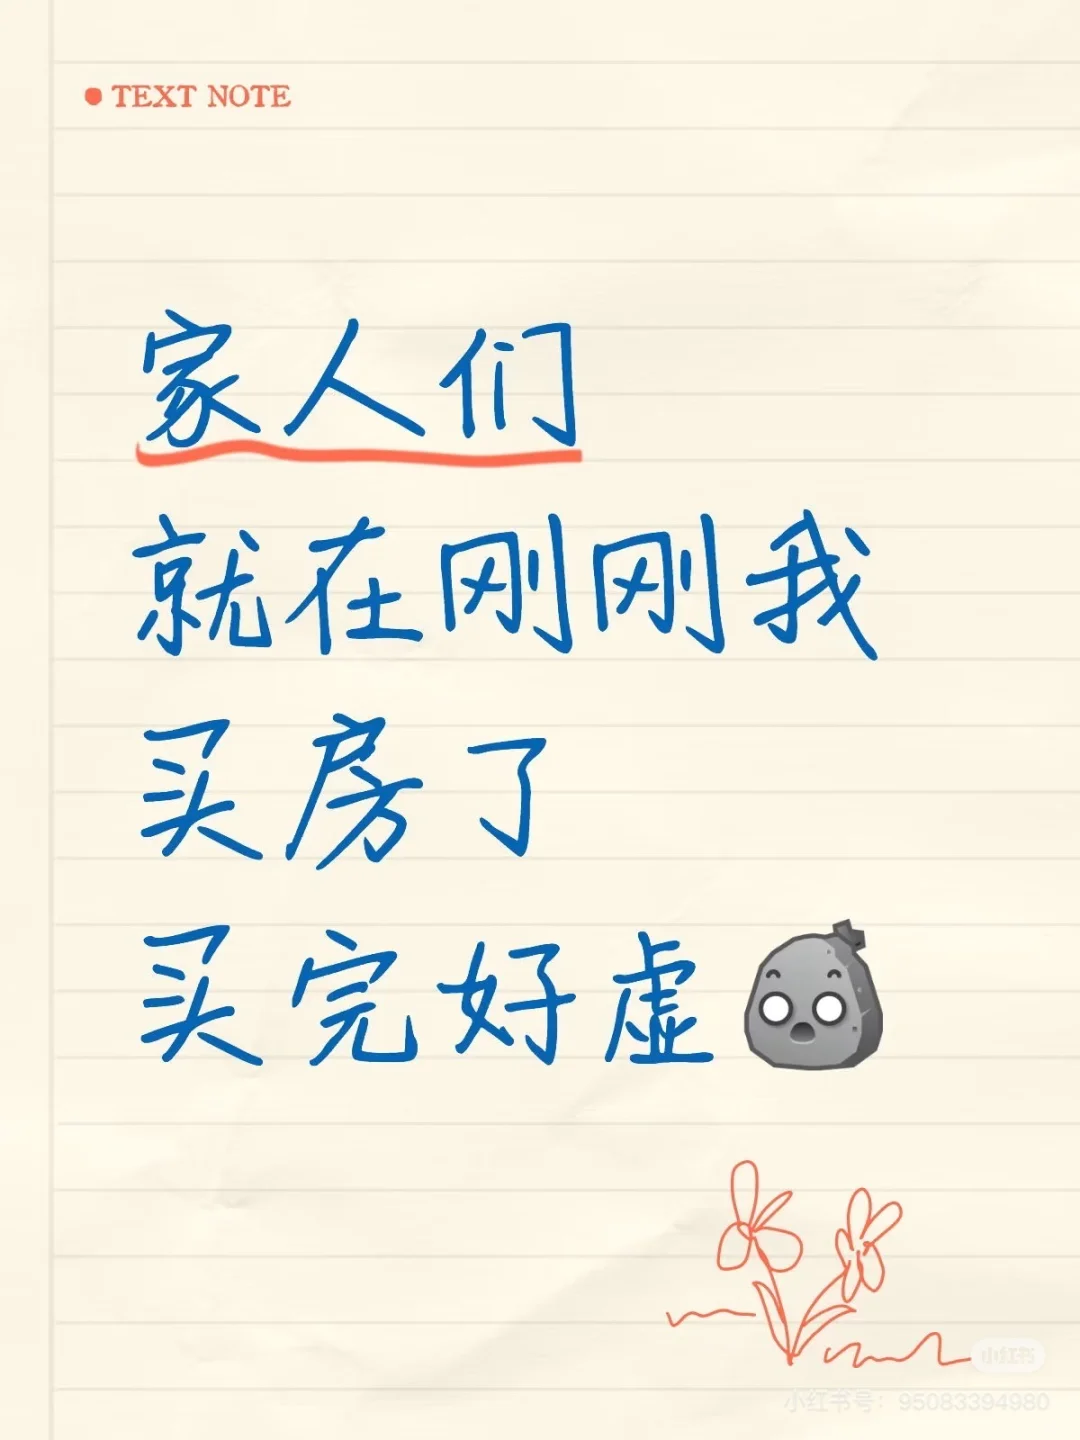 TEXT NOTE
家人们
就在刚刚我
买房了
买完好虚
小红书
小红书号：95083394980